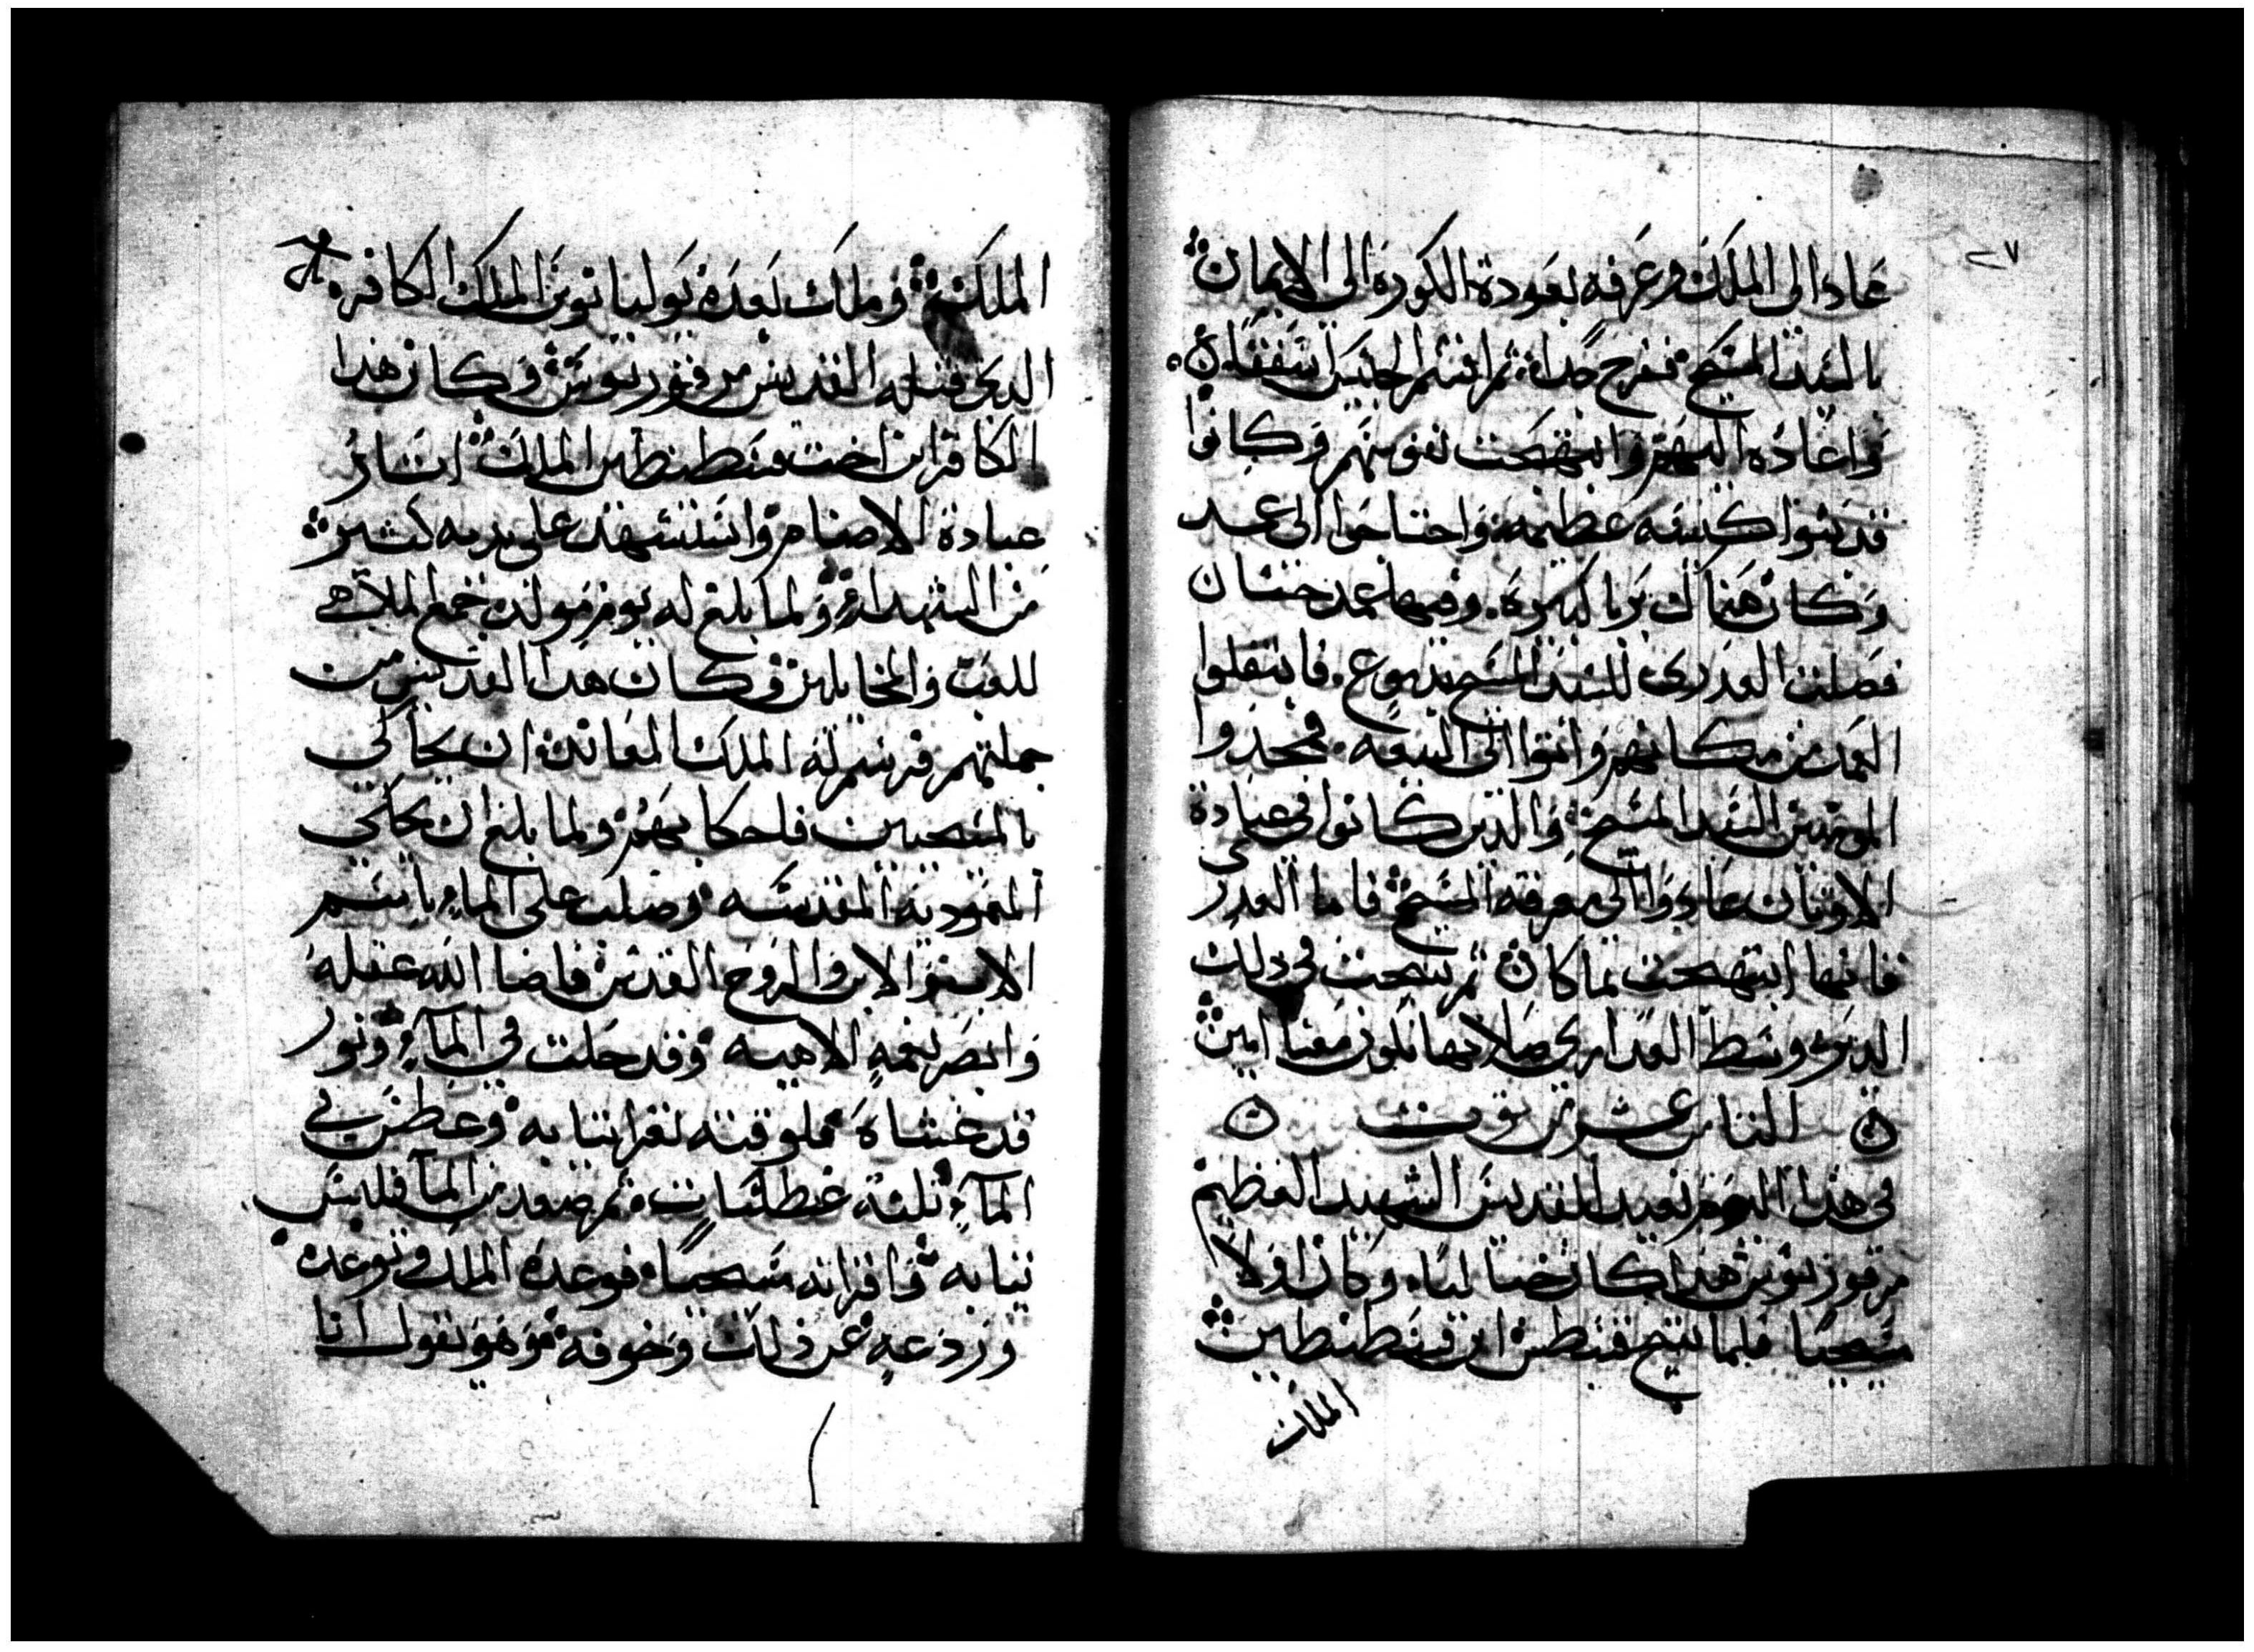 ٢٧
عاد الى الملك وعرفه بعودة الكورة الى الايمان
بالسيد المسيح ففرح جدا ثم اقسم الحبيس اسقفا
واعاده اليهم وابتهجت نفوسهم وكانوا
قد بنوا كنيسه عظيمه واحتاجوا الى عمد
وكان هناك بربا كبيرة وفيها عمد حسان
فصلت العدرى للسيد المسيح بدموع فانتقلوا
العمد من مكانهم واتوا الى البيعه فمجدوا
المومنين السيد المسيح والدين كانوا في عبادة
الاوتان عادوا الى معرفة المسيح فاما العدرى
فانها ابتهجت بما كان تم تنيحت في دلك
الدير وسط العدارى صلاتها تكون معنا امين
التامن عشر من توت
في هدا اليوم نعيد للقديس الشهيد العظيم
مرقوريوس هدا كان خياليا وكان اولا
مسيحيا فلما تنيح قسطس ابن قسطنطين
الملك
الملك وملك بعده يوليانوس الملك الكافر
الدي قتله القديس مرقوريوس وكان هدا
الكافر ابن اخت قسطنطين الملك اتار
عبادة الاصنام واستشهد على يديه كتير
من الشهدا ولما بلغ له يوم مولده جمع الملاهي
للعب والمخايلين وكان هدا القديس من
جملتهم فرسم له الملك المعاند ان يحاكي
بالمسيحيين فلحكا بهم ولما بلغ ان يحاكي
المعموديه المقدسه وصلب على الماء باسم
الاب والابن والروح القدس فاضا الله عقله
وابصر نعمه الاهيه وقد حلت في الماء ونور
قد غشاه فلوقته تعرا تيابه وغطس في
الماء تلتة غطسات تم صعد من الما فلبس
تيابه واقر انه مسيحيا فوعده الملك وتوعده
وردعه عن دلك وخوفه وهو يقول انا